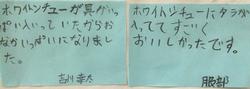 ホワイトンチューが具がいっ
ぱい入っていたからお
なかいっぱいになりまし
た。
吉川幸大
ホワイトシチューにタラが
入っててすごく
おいしかったです。
服部